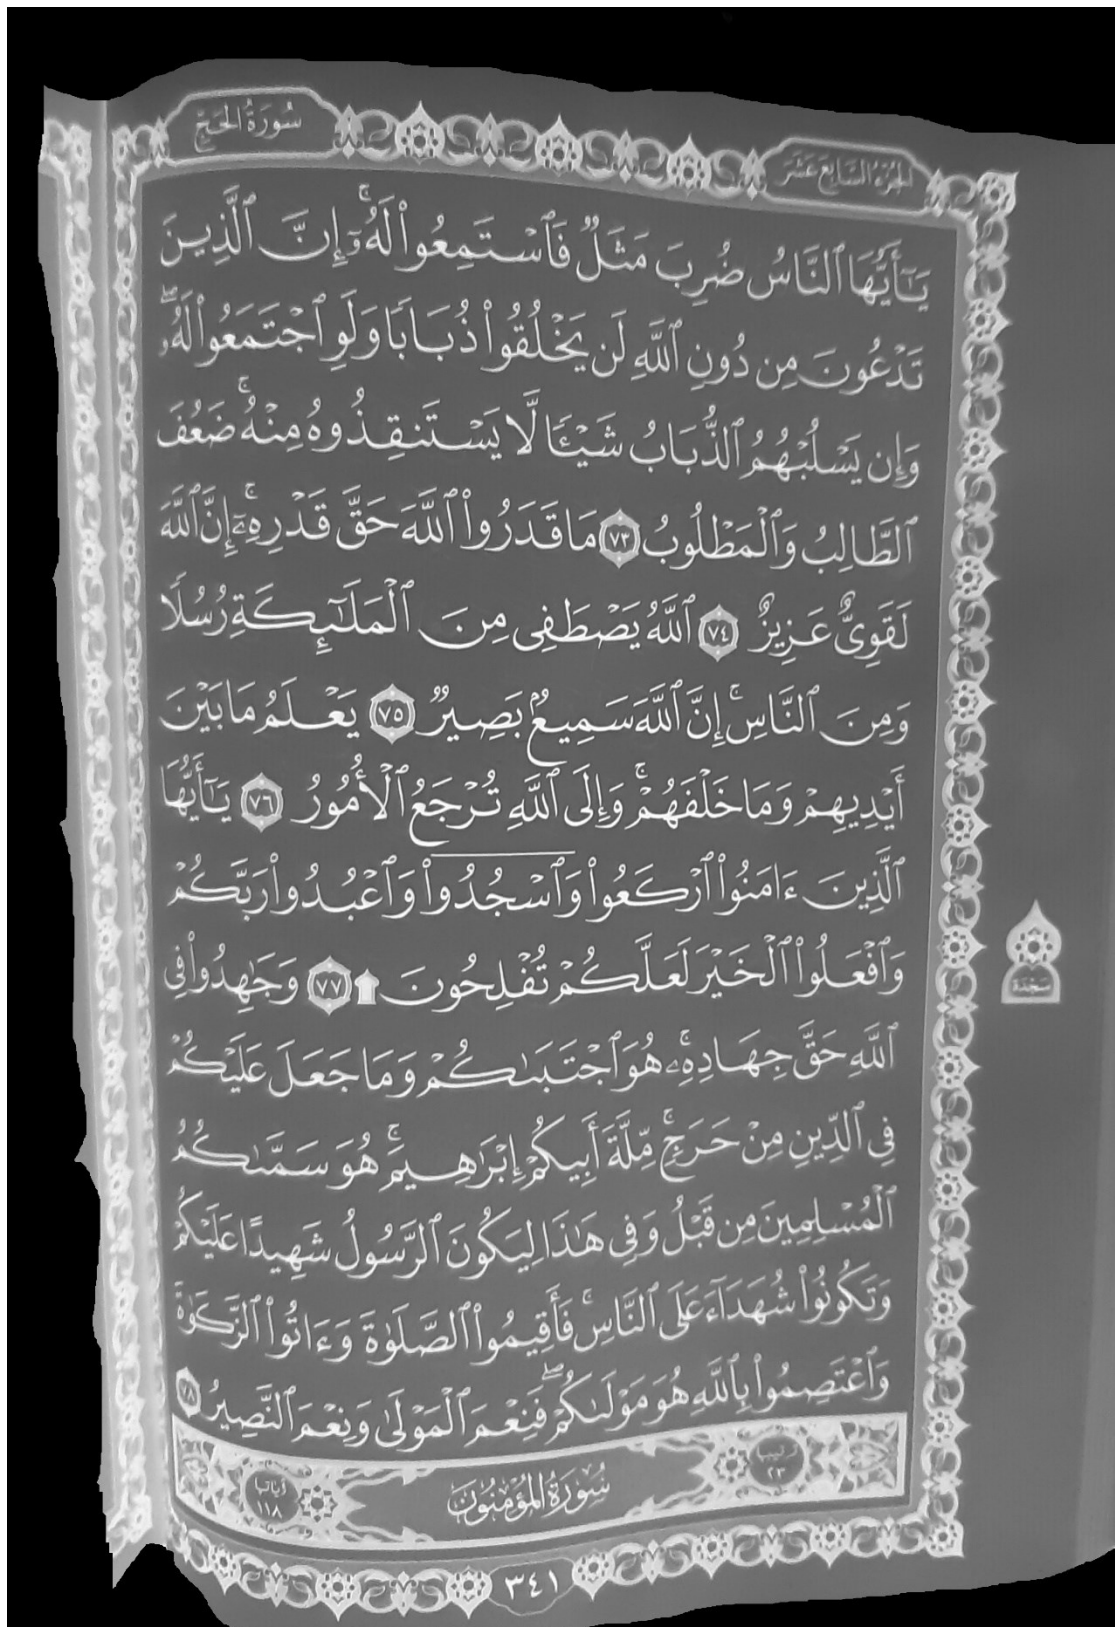 سُورَةُ الحَجِّ
الجُزْءُ السَّابِعَ عَشَرَ
يَـٰٓأَيُّهَا ٱلنَّاسُ ضُرِبَ مَثَلٌ فَٱسْتَمِعُوا۟ لَهُۥٓ ۚ إِنَّ ٱلَّذِينَ
تَدْعُونَ مِن دُونِ ٱللَّهِ لَن يَخْلُقُوا۟ ذُبَابًا وَلَوِ ٱجْتَمَعُوا۟ لَهُۥ ۖ
وَإِن يَسْلُبْهُمُ ٱلذُّبَابُ شَيْـًٔا لَّا يَسْتَنقِذُوهُ مِنْهُ ۚ ضَعُفَ
ٱلطَّالِبُ وَٱلْمَطْلُوبُ ٧٣ مَا قَدَرُوا۟ ٱللَّهَ حَقَّ قَدْرِهِۦٓ ۚ إِنَّ ٱللَّهَ
لَقَوِىٌّ عَزِيزٌ ٧٤ ٱللَّهُ يَصْطَفِى مِنَ ٱلْمَلَـٰٓئِكَةِ رُسُلًا
وَمِنَ ٱلنَّاسِ ۚ إِنَّ ٱللَّهَ سَمِيعٌۢ بَصِيرٌ ٧٥ يَعْلَمُ مَا بَيْنَ
أَيْدِيهِمْ وَمَا خَلْفَهُمْ ۚ وَإِلَى ٱللَّهِ تُرْجَعُ ٱلْأُمُورُ ٧٦ يَـٰٓأَيُّهَا
ٱلَّذِينَ ءَامَنُوا۟ ٱرْكَعُوا۟ وَٱسْجُدُوا۟ وَٱعْبُدُوا۟ رَبَّكُمْ
وَٱفْعَلُوا۟ ٱلْخَيْرَ لَعَلَّكُمْ تُفْلِحُونَ ۩ ٧٧ وَجَـٰهِدُوا۟ فِى
سَجْدَة
ٱللَّهِ حَقَّ جِهَادِهِۦ ۚ هُوَ ٱجْتَبَىٰكُمْ وَمَا جَعَلَ عَلَيْكُمْ
فِى ٱلدِّينِ مِنْ حَرَجٍ ۚ مِّلَّةَ أَبِيكُمْ إِبْرَٰهِيمَ ۚ هُوَ سَمَّىٰكُمُ
ٱلْمُسْلِمِينَ مِن قَبْلُ وَفِى هَـٰذَا لِيَكُونَ ٱلرَّسُولُ شَهِيدًا عَلَيْكُمْ
وَتَكُونُوا۟ شُهَدَآءَ عَلَى ٱلنَّاسِ ۚ فَأَقِيمُوا۟ ٱلصَّلَوٰةَ وَءَاتُوا۟ ٱلزَّكَوٰةَ
وَٱعْتَصِمُوا۟ بِٱللَّهِ هُوَ مَوْلَىٰكُمْ ۖ فَنِعْمَ ٱلْمَوْلَىٰ وَنِعْمَ ٱلنَّصِيرُ ٧٨
ترتيبها ٢٣
سُورَةُ المُؤْمِنُونَ
آياتها ١١٨
٣٤١